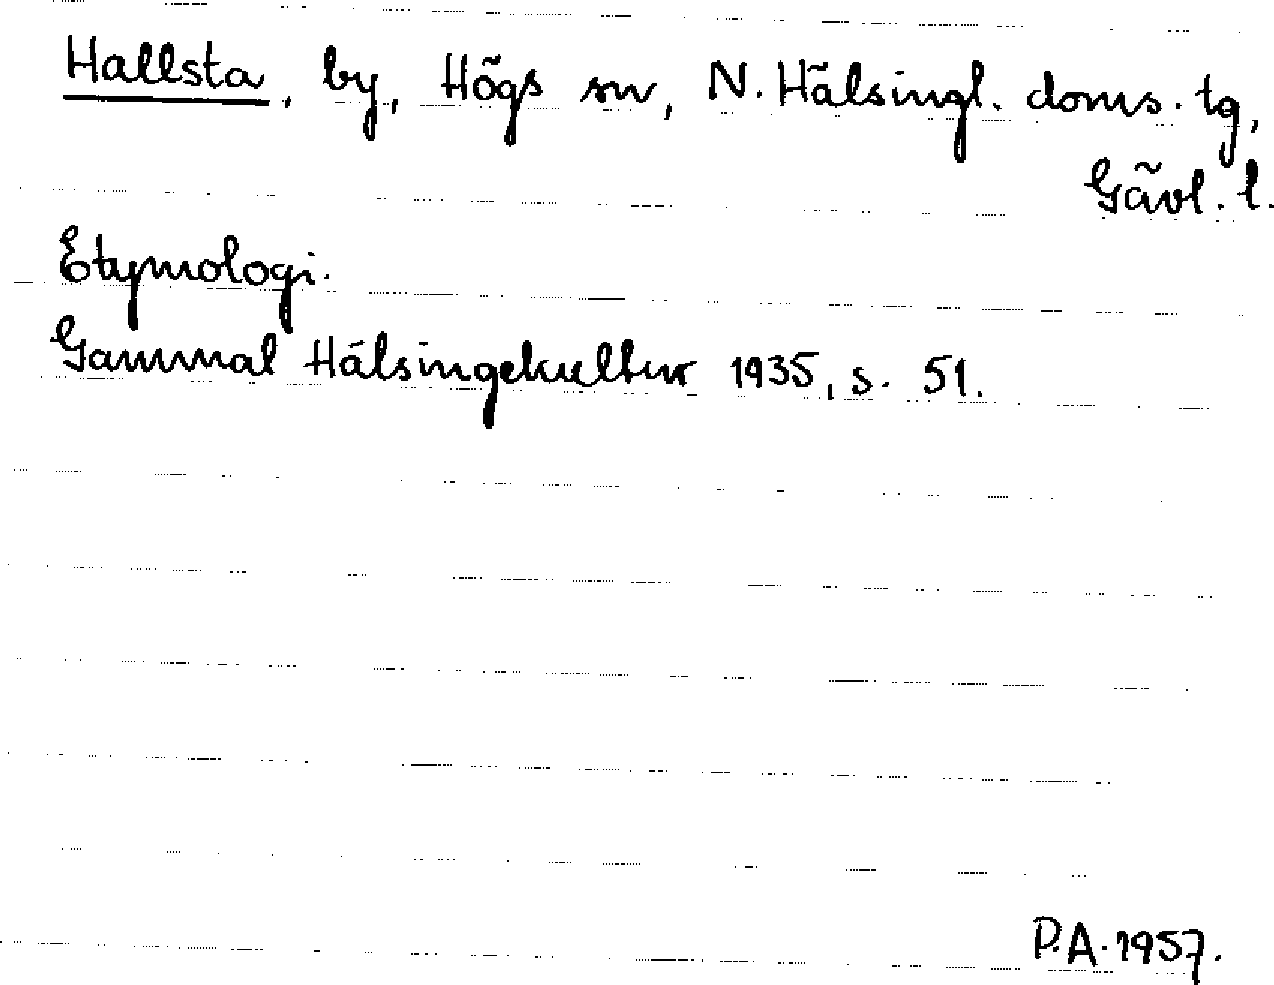 Hallsta, by, Högs sn, N. Hälsingl. doms. tg,
Gävl. l.
Etymologi.
Gammal Hälsingekultur 1935, s. 51.
P.A. 1957.